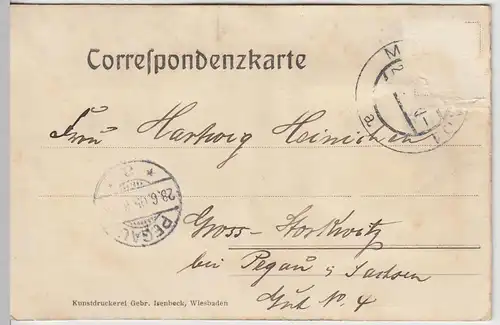 Correspondenzkarte
Frau Hartwig Heinichen
28.6.05
PEGAU
Gross-Storkwitz
bei Pegau i/Sachsen
Gut No 4
Kunstdruckerei Gebr. Isenbeck, Wiesbaden